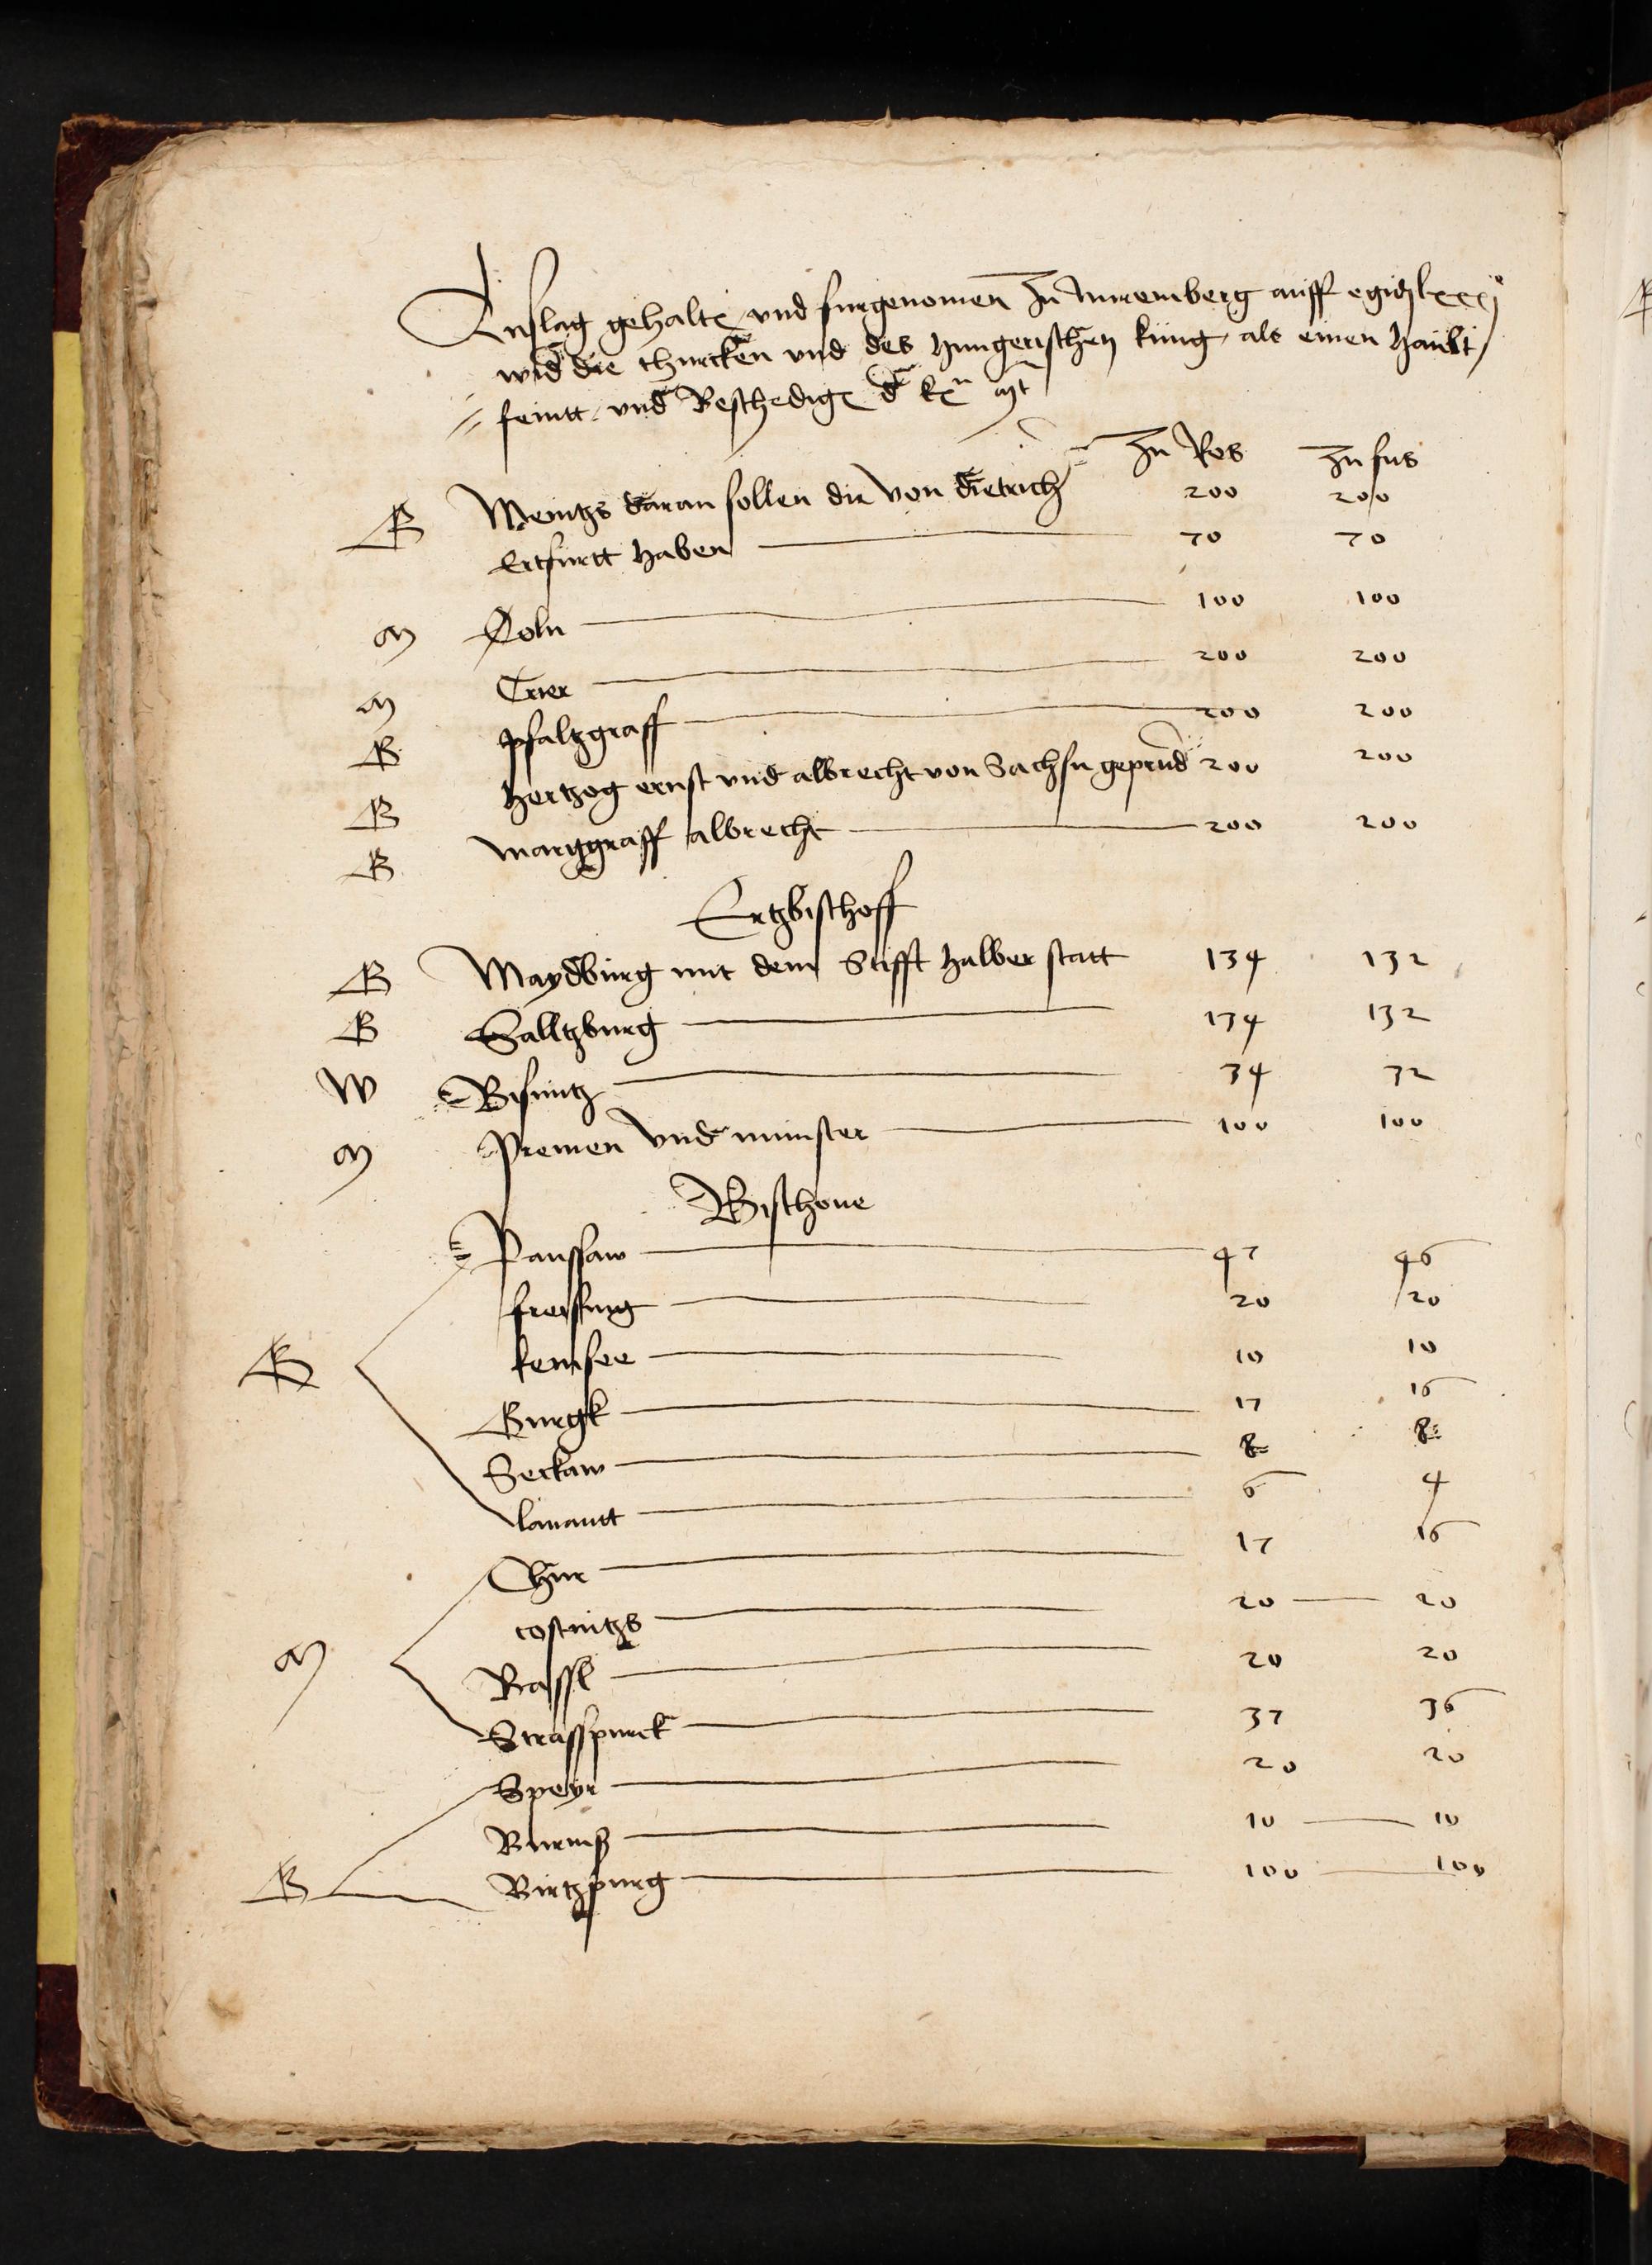 Anslag gehalten und furgenomen zu Nuremberg auff egidy lxxxj°
wid die thurcken und des Hungerischen kung als einen Haubt
feintt und Beschediger d k mt
zu Ros zu fus
R Meintzs daran sollen die von dietrich 200 200
Ertfurtt haben 70 70
M Coln 100 100
M Trier 200 200
R pfaltzgraff 200 200
R Hertzog ernst und albrecht von Sachsn geprud 200 200
R marggraff albrecht 200 200
Ertzbischoff
R Maydburg mit dem Stifft halber statt 134 132
R Salltzburg 134 132
W Bisuntz 34 32
M Premen und munster 100 100
Bischoue
Paussaw 47 46
freissing 20 20
R kemsee 10 10
Gurgk 17 16
Seckaw 8 8
lauantt 6 4
Chur 17 16
costnitzs 20 20
M Bassl 20 20
Strasspurck 37 36
Speyr 20 20
Wurmß 10 10
R Wirtzpurg 100 100